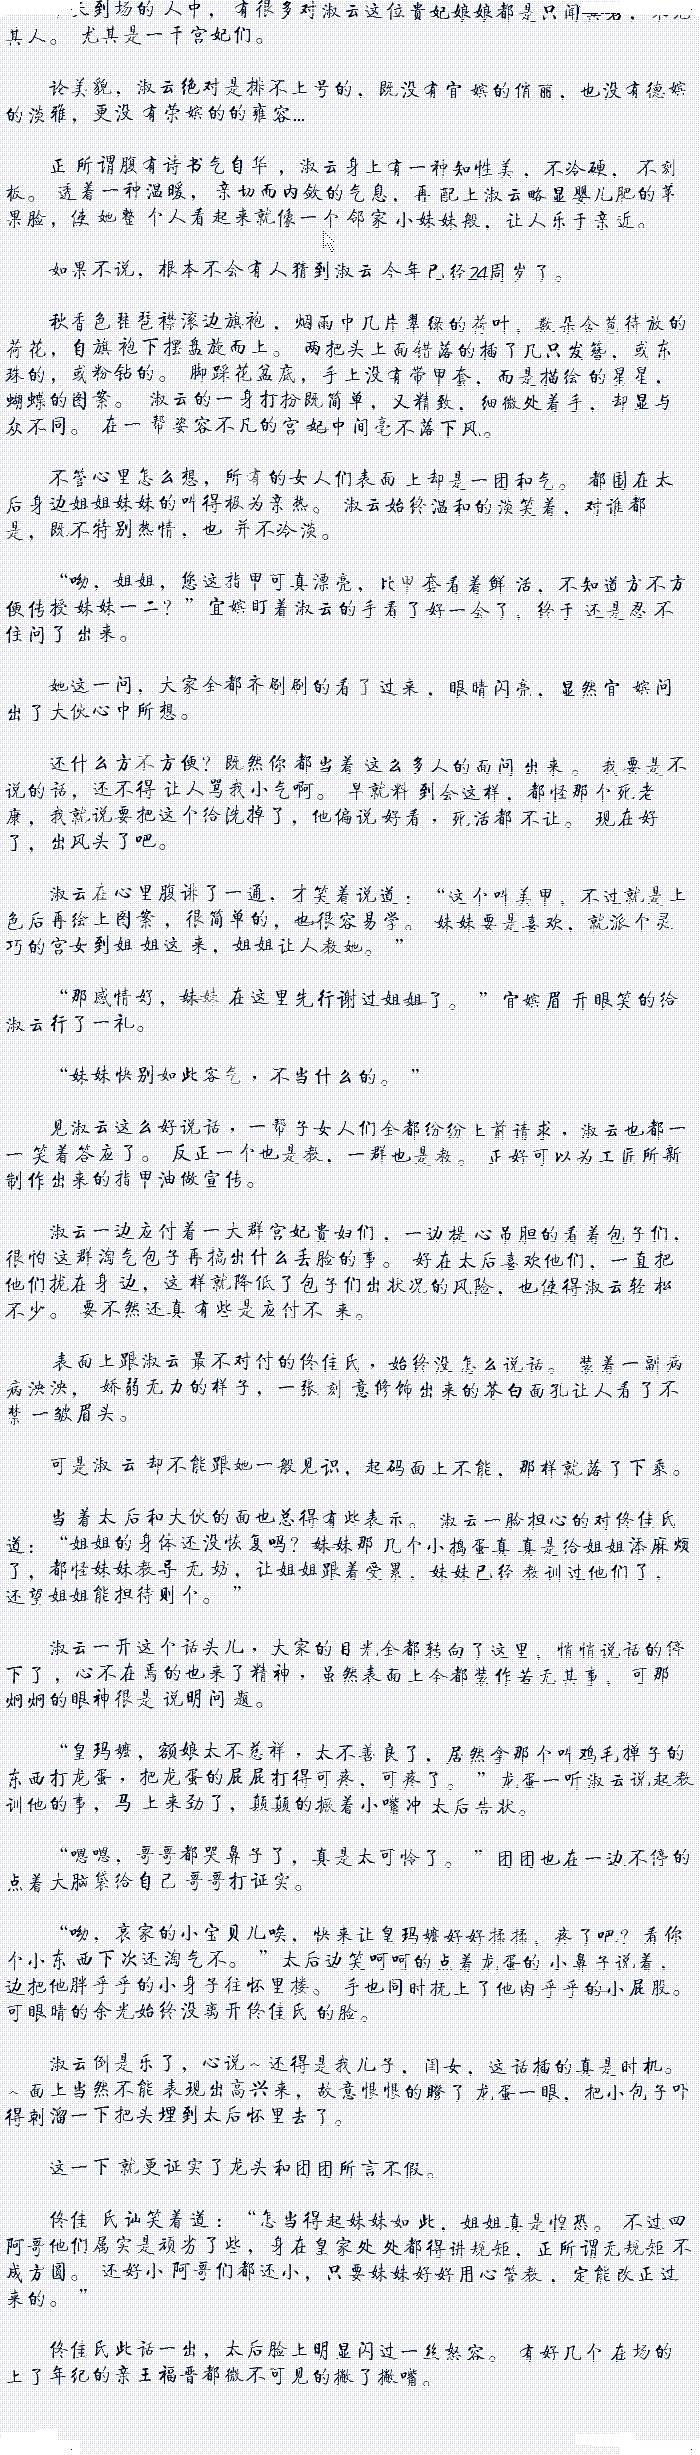 天到场的人中，有很多对淑云这位贵妃娘娘都是只闻其名，未见
其人。尤其是一干宫妃们。
论美貌，淑云绝对是排不上号的，既没有宜嫔的俏丽，也没有德嫔
的淡雅，更没有荣嫔的的雍容...
正所谓腹有诗书气自华，淑云身上有一种知性美，不冷硬，不刻
板。透着一种温暖，亲切而内敛的气息，再配上淑云略显婴儿肥的苹
果脸，使她整个人看起来就像一个邻家小妹妹般，让人乐于亲近。
如果不说，根本不会有人猜到淑云今年已经24周岁了。
秋香色琵琶襟滚边旗袍，烟雨中几片翠绿的荷叶，数朵含苞待放的
荷花，自旗袍下摆盘旋而上。两把头上面错落的插了几只发簪，或东
珠的，或粉钻的。脚踩花盆底，手上没有带甲套，而是描绘的星星，
蝴蝶的图案。淑云的一身打扮既简单，又精致，细微处着手，却显与
众不同。在一帮姿容不凡的宫妃中间毫不落下风。
不管心里怎么想，所有的女人们表面上却是一团和气。都围在太
后身边姐姐妹妹的叫得极为亲热。淑云始终温和的淡笑着，对谁都
是，既不特别热情，也并不冷淡。
“呦，姐姐，您这指甲可真漂亮，比甲套看着鲜活，不知道方不方
便传授妹妹一二？”宜嫔盯着淑云的手看了好一会了，终于还是忍不
住问了出来。
她这一问，大家全都齐刷刷的看了过来，眼睛闪亮，显然宜嫔问
出了大伙心中所想。
还什么方不方便？既然你都当着这么多人的面问出来。我要是不
说的话，还不得让人骂我小气啊。早就料到会这样，都怪那个死老
康，我就说要把这个给洗掉了，他偏说好看，死活都不让。现在好
了，出风头了吧。
淑云在心里腹诽了一通，才笑着说道：“这个叫美甲，不过就是上
色后再绘上图案，很简单的，也很容易学。妹妹要是喜欢，就派个灵
巧的宫女到姐姐这来，姐姐让人教她。”
“那感情好，妹妹在这里先行谢过姐姐了。”宜嫔眉开眼笑的给
淑云行了一礼。
“妹妹快别如此客气，不当什么的。”
见淑云这么好说话，一帮子女人们全都纷纷上前请求，淑云也都一
一笑着答应了。反正一个也是教，一群也是教。正好可以为工匠所新
制作出来的指甲油做宣传。
淑云一边应付着一大群宫妃贵妇们，一边提心吊胆的看着包子们，
很怕这群淘气包子再搞出什么丢脸的事。好在太后喜欢他们，一直把
他们拢在身边，这样就降低了包子们出状况的风险，也使得淑云轻松
不少。要不然还真有些是应付不来。
表面上跟淑云最不对付的佟佳氏，始终没怎么说话。装着一副病
病泱泱，娇弱无力的样子，一张刻意修饰出来的苍白面孔让人看了不
禁一皱眉头。
可是淑云却不能跟她一般见识，起码面上不能，那样就落了下乘。
当着太后和大伙的面也总得有些表示。淑云一脸担心的对佟佳氏
道：“姐姐的身体还没恢复吗？妹妹那几个小捣蛋真真是给姐姐添麻烦
了，都怪妹妹教导无妨，让姐姐跟着受累，妹妹已经教训过他们了，
还望姐姐能担待则个。”
淑云一开这个话头儿，大家的目光全都转向了这里，悄悄说话的停
下了，心不在焉的也来了精神，虽然表面上全都装作若无其事，可那
炯炯的眼神很是说明问题。
“皇玛嬷，额娘太不慈祥，太不善良了，居然拿那个叫鸡毛掸子的
东西打龙蛋，把龙蛋的屁屁打得可疼，可疼了。”龙蛋一听淑云说起教
训他的事，马上来劲了，颠颠的撅着小嘴冲太后告状。
“嗯嗯，哥哥都哭鼻子了，真是太可怜了。”团团也在一边不停的
点着大脑袋给自己哥哥打证实。
“呦，哀家的小宝贝儿唉，快来让皇玛嬷好好揉揉，疼了吧？看你
个小东西下次还淘气不。”太后边笑呵呵的点着龙蛋的小鼻子说着，
边把他胖乎乎的小身子往怀里搂。手也同时抚上了他肉乎乎的小屁股。
可眼睛的余光始终没离开佟佳氏的脸。
淑云倒是乐了，心说~还得是我儿子，闺女，这话插的真是时机。
~面上当然不能表现出高兴来，故意恨恨的瞪了龙蛋一眼，把小包子吓
得刺溜一下把头埋到太后怀里去了。
这一下就更证实了龙头和团团所言不假。
佟佳氏讪笑着道：“怎当得起妹妹如此，姐姐真是惶恐。不过四
阿哥他们属实是顽劣了些，身在皇家处处都得讲规矩，正所谓无规矩不
成方圆。还好小阿哥们都还小，只要妹妹好好用心管教，定能改正过
来的。”
佟佳氏此话一出，太后脸上明显闪过一丝怒容。有好几个在场的
上了年纪的亲王福晋都微不可见的撇了撇嘴。